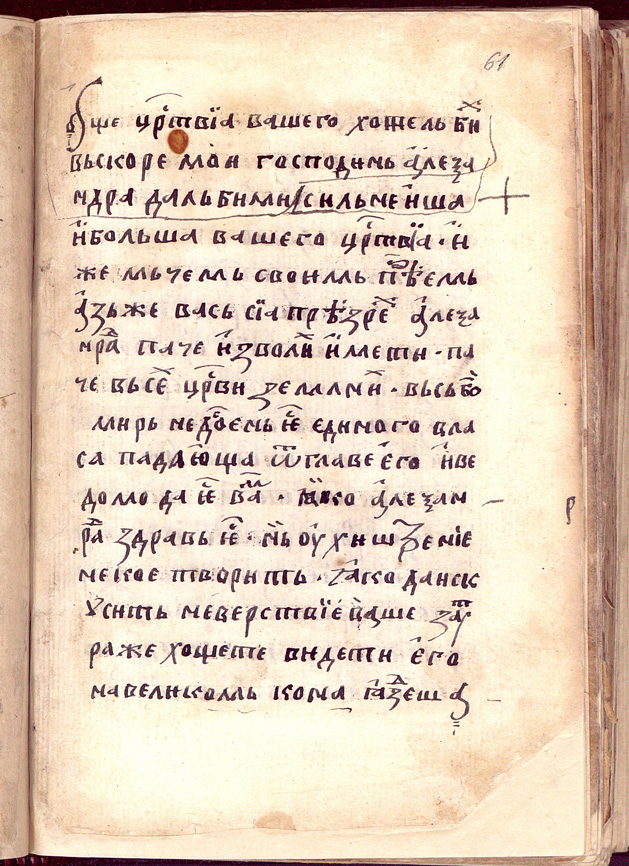 61
ѹше црⷭ҇твїа вашего хотель бⷯи
вьскоре мои господинь а҆леѯа
ндра даль би ми, сильнеиша
и҆ больша вашего црⷭ҇твїа · и҆
же мьчемь своимь
а҆зь же вась сїа презре а҆леѯа
нрⷣа паче и҆зволи и҆мети · па
че вьсе црⷭ҇ви земями · вьсь бо
мирь не дⷭ҇оень е҆ⷭ единого вла
са падающа ѿ главе е҆го и҆ ве
домо да е҆ⷭ ваⷨ · ꙗко а҆леѯан
рⷣа здравь е҆ⷭ · нь оу҆хищрение
некое творить · ꙗко да иск
ꙋсить неверствїе ваше
раже хощете видети е҆го
на великомь кона